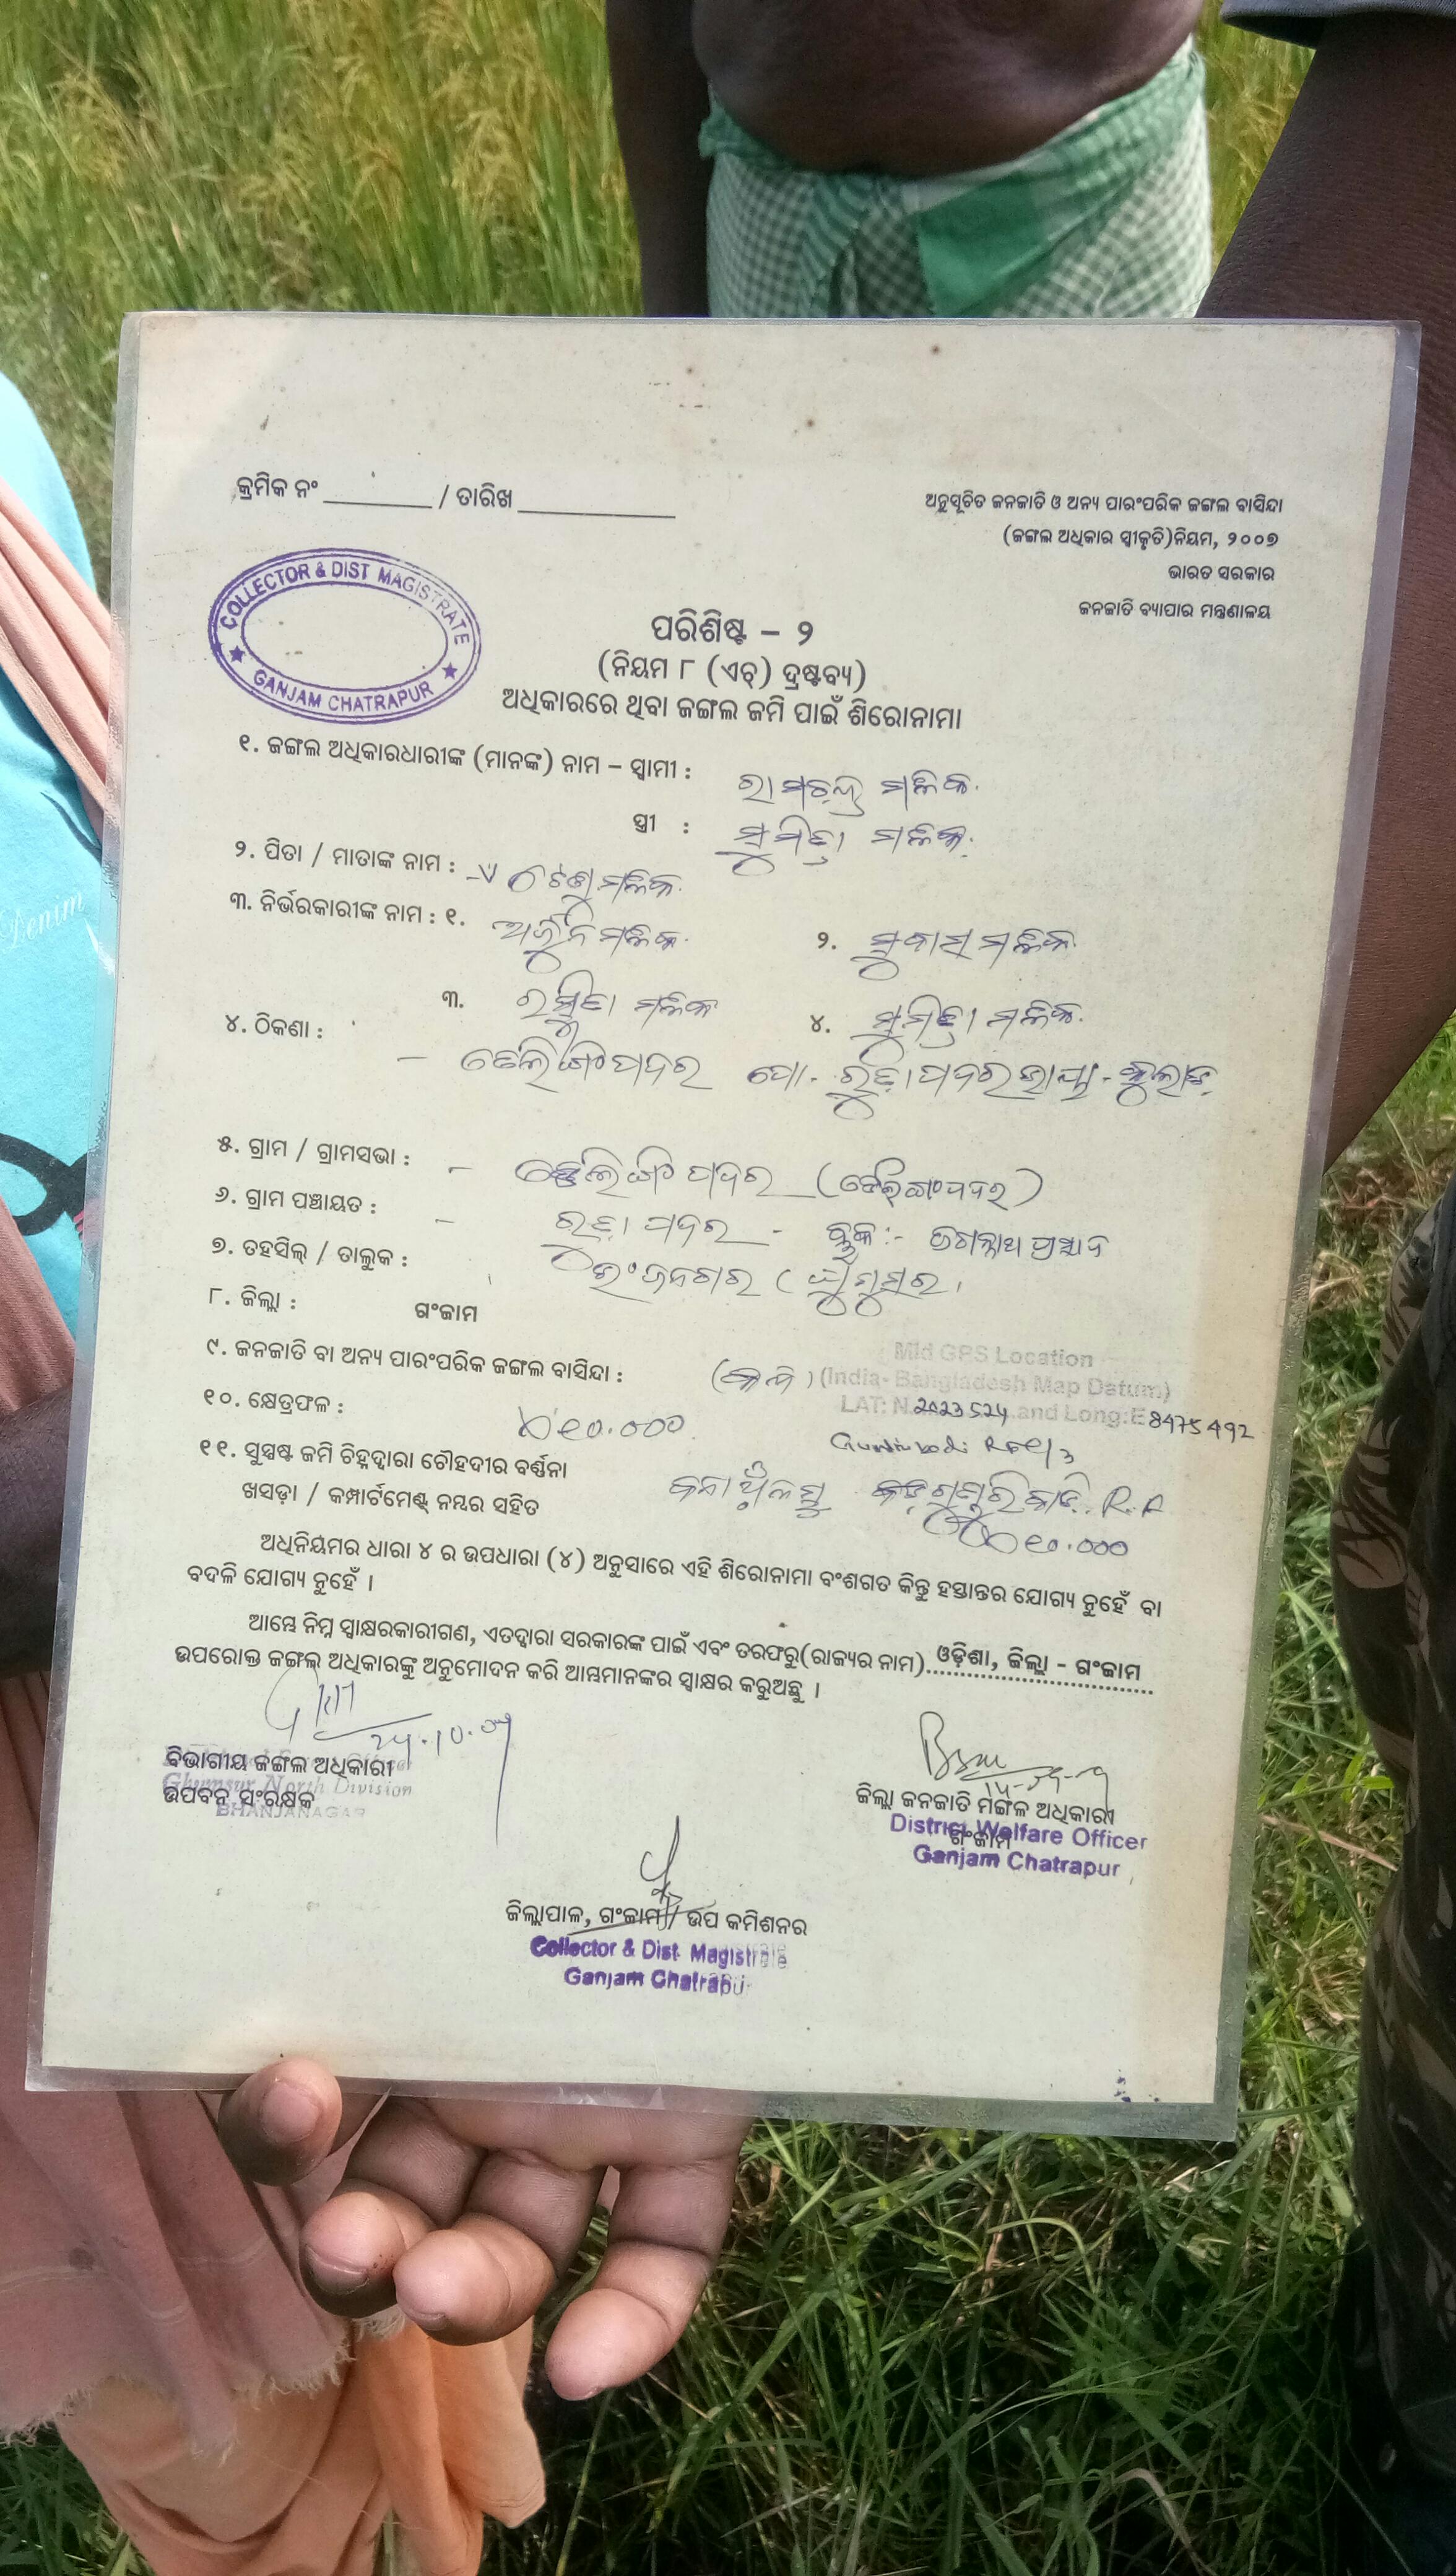 କ୍ରମିକ ନଂ ________ / ତାରିଖ ____________
ଅନୁସୂଚିତ ଜନଜାତି ଓ ଅନ୍ୟ ପାରଂପରିକ ଜଙ୍ଗଲ ବାସିନ୍ଦା
(ଜଙ୍ଗଲ ଅଧିକାର ସ୍ୱୀକୃତି)ନିୟମ, ୨୦୦୭
ଭାରତ ସରକାର
ଜନଜାତି ବ୍ୟାପାର ମନ୍ତ୍ରଣାଳୟ
COLLECTOR & DIST MAGISTRATE
GANJAM CHATRAPUR
ପରିଶିଷ୍ଟ – ୨
(ନିୟମ ୮ (ଏଚ୍) ଦ୍ରଷ୍ଟବ୍ୟ)
ଅଧିକାରରେ ଥିବା ଜଙ୍ଗଲ ଜମି ପାଇଁ ଶିରୋନାମା
୧. ଜଙ୍ଗଲ ଅଧିକାରଧାରୀଙ୍କ (ମାନଙ୍କ) ନାମ – ସ୍ୱାମୀ : ରାମଚନ୍ଦ୍ର ମଳିକ
ସ୍ତ୍ରୀ : ସୁମିତ୍ରା ମଳିକ
୨. ପିତା / ମାତାଙ୍କ ନାମ : ମଳିକ
୩. ନିର୍ଭରକାରୀଙ୍କ ନାମ : ୧. ଅର୍ଜୁନ ମଳିକ ୨. ସୁବାସ ମଳିକ
୩. ମଳିକ ୪. ସୁମିତ୍ରା ମଳିକ
୪. ଠିକଣା : ପୋ-
୫. ଗ୍ରାମ / ଗ୍ରାମସଭା :
୬. ଗ୍ରାମ ପଞ୍ଚାୟତ : ବ୍ଲକ :- ଜଗନ୍ନାଥ ପ୍ରସାଦ
୭. ତହସିଲ୍ / ତାଲୁକ : ଭଂଜନଗର (ଘୁମୁସର)
୮. ଜିଲ୍ଲା : ଗଂଜାମ
୯. ଜନଜାତି ବା ଅନ୍ୟ ପାରଂପରିକ ଜଙ୍ଗଲ ବାସିନ୍ଦା : (କନ୍ଧ)
Mid GPS Location
(India- Bangladesh Map Datum)
LAT: N. 2023524 and Long:E 8475492
୧୦. କ୍ଷେତ୍ରଫଳ :
୧୧. ସୁସ୍ପଷ୍ଟ ଜମି ଚିହ୍ନଦ୍ୱାରା ଚୌହଦୀର ବର୍ଣ୍ଣନା
ଖସଡ଼ା / କମ୍ପାର୍ଟମେଣ୍ଟ୍ ନମ୍ବର ସହିତ R.F
ଅଧିନିୟମର ଧାରା ୪ ର ଉପଧାରା (୪) ଅନୁସାରେ ଏହି ଶିରୋନାମା ବଂଶଗତ କିନ୍ତୁ ହସ୍ତାନ୍ତର ଯୋଗ୍ୟ ନୁହେଁ ବା
ବଦଳି ଯୋଗ୍ୟ ନୁହେଁ ।
ଆମ୍ଭେ ନିମ୍ନ ସ୍ୱାକ୍ଷରକାରୀଗଣ, ଏତଦ୍ଦ୍ୱାରା ସରକାରଙ୍କ ପାଇଁ ଏବଂ ତରଫରୁ(ରାଜ୍ୟର ନାମ) ଓଡ଼ିଶା, ଜିଲ୍ଲା - ଗଂଜାମ
ଉପରୋକ୍ତ ଜଙ୍ଗଲ୍ ଅଧିକାରଙ୍କୁ ଅନୁମୋଦନ କରି ଆମ୍ଭମାନଙ୍କର ସ୍ୱାକ୍ଷର କରୁଅଛୁ ।
ବିଭାଗୀୟ ଜଙ୍ଗଲ ଅଧିକାରୀ
Ghumsur North Division
ଉପବନ ସଂରକ୍ଷକ
BHANJANAGAR
ଜିଲ୍ଲା ଜନଜାତି ମଙ୍ଗଳ ଅଧିକାରୀ
ଗଂଜାମ
District Welfare Officer
Ganjam Chatrapur
ଜିଲ୍ଲାପାଳ, ଗଂଜାମ / ଉପ କମିଶନର
Collector & Dist. Magistrate
Ganjam Chatrapur
Denim